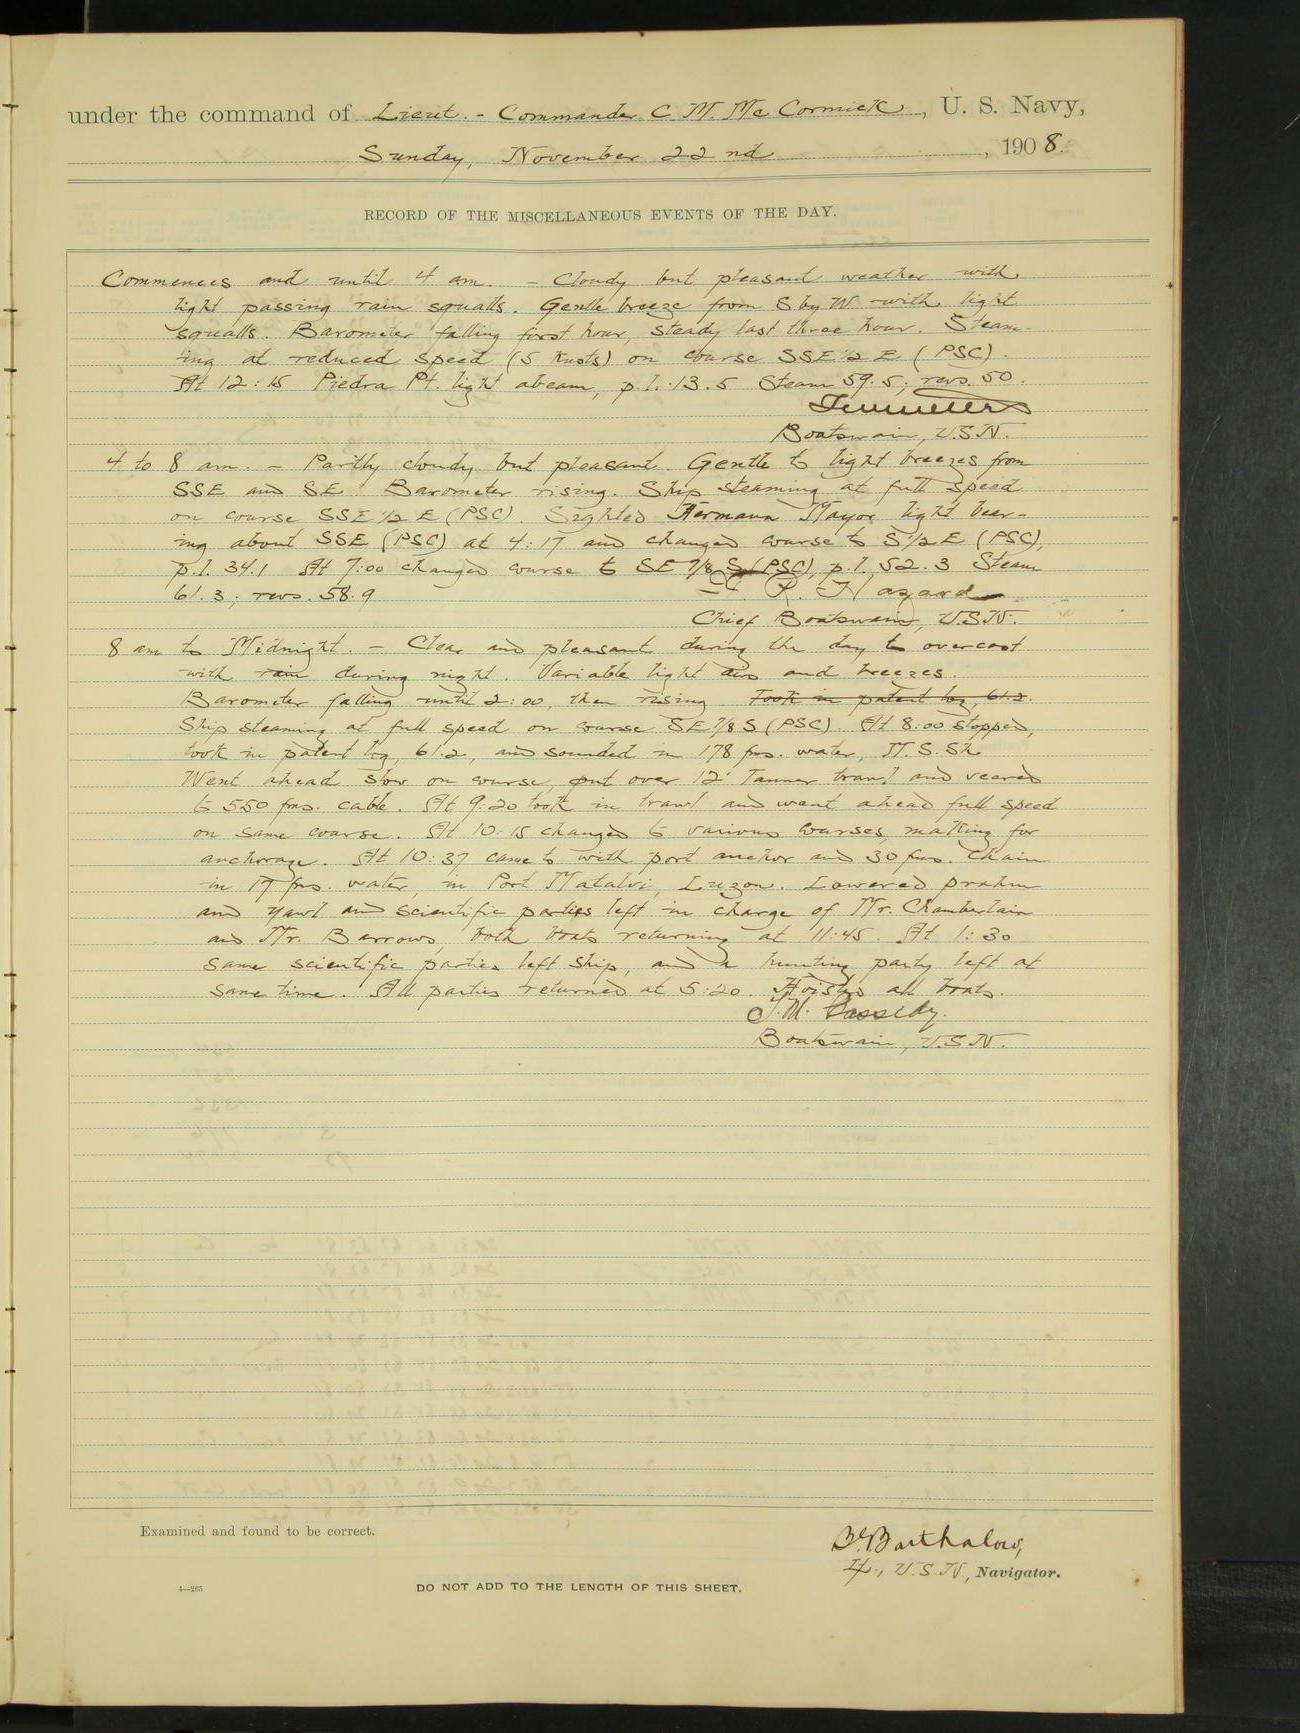 under the command of Lieut. - Commander C. M. McCormick, U. S. Navy,
Sunday, November 22nd, 1908.
RECORD OF THE MISCELLANEOUS EVENTS OF THE DAY.
Commences and until 4 am. - Cloudy but pleasant weather with
light passing rain squalls. Gentle breeze from S by W with light
squalls. Barometer falling first hour, steady last three hour. Steam-
ing at reduced speed (5 knots) on course SSE 1/2 E (PSC).
At 12:15 Piedra Pt. light abeam, p.l. 13.5 Steam 59.5; revs. 50.
Boatswain, U.S.N.
4 to 8 am. - Partly cloudy but pleasant. Gentle to light breezes from
SSE and SE. Barometer rising. Ship steaming at full speed
on course SSE 1/2 E (PSC). Sighted Hermana Mayor light bear-
ing about SSE (PSC) at 4:17 and changed course to S 1/2 E (PSC),
p.l. 34.1 At 7:00 changed course to SE 7/8 S (PSC), p.l. 52.3 Steam
61.3; revs. 58.9
R. Hazard
Chief Boatswain, U.S.N.
8 am to Midnight. - Clear and pleasant during the day to overcast
with rain during night. Variable light airs and breezes.
Barometer falling until 2:00, then rising. Took in patent log, 61.2.
Ship steaming at full speed on course SE 7/8 S (PSC). At 8:00 stopped,
took in patent log, 61.2, and sounded in 178 fms. water, M. S. Sh.
Went ahead slow on course, put over 12' Tanner trawl and veered
to 550 fms. cable. At 9:20 took in trawl and went ahead full speed
on same course. At 10:15 changed to various courses, making for
anchorage. At 10:37 came to with port anchor and 30 fms. chain
in 17 fms. water, in Port Matalvi, Luzon. Lowered prahm
and yawl and scientific parties left in charge of Mr. Chamberlain
and Mr. Barrows, both boats returning at 11:45. At 1:30
same scientific parties left ship, and a hunting party left at
same time. All parties returned at 5:20. Hoisted all boats.
J. M. Cassidy.
Boatswain, U.S.N.
Examined and found to be correct.
Barthalow,
Lt., U.S.N., Navigator.
4—265
DO NOT ADD TO THE LENGTH OF THIS SHEET.